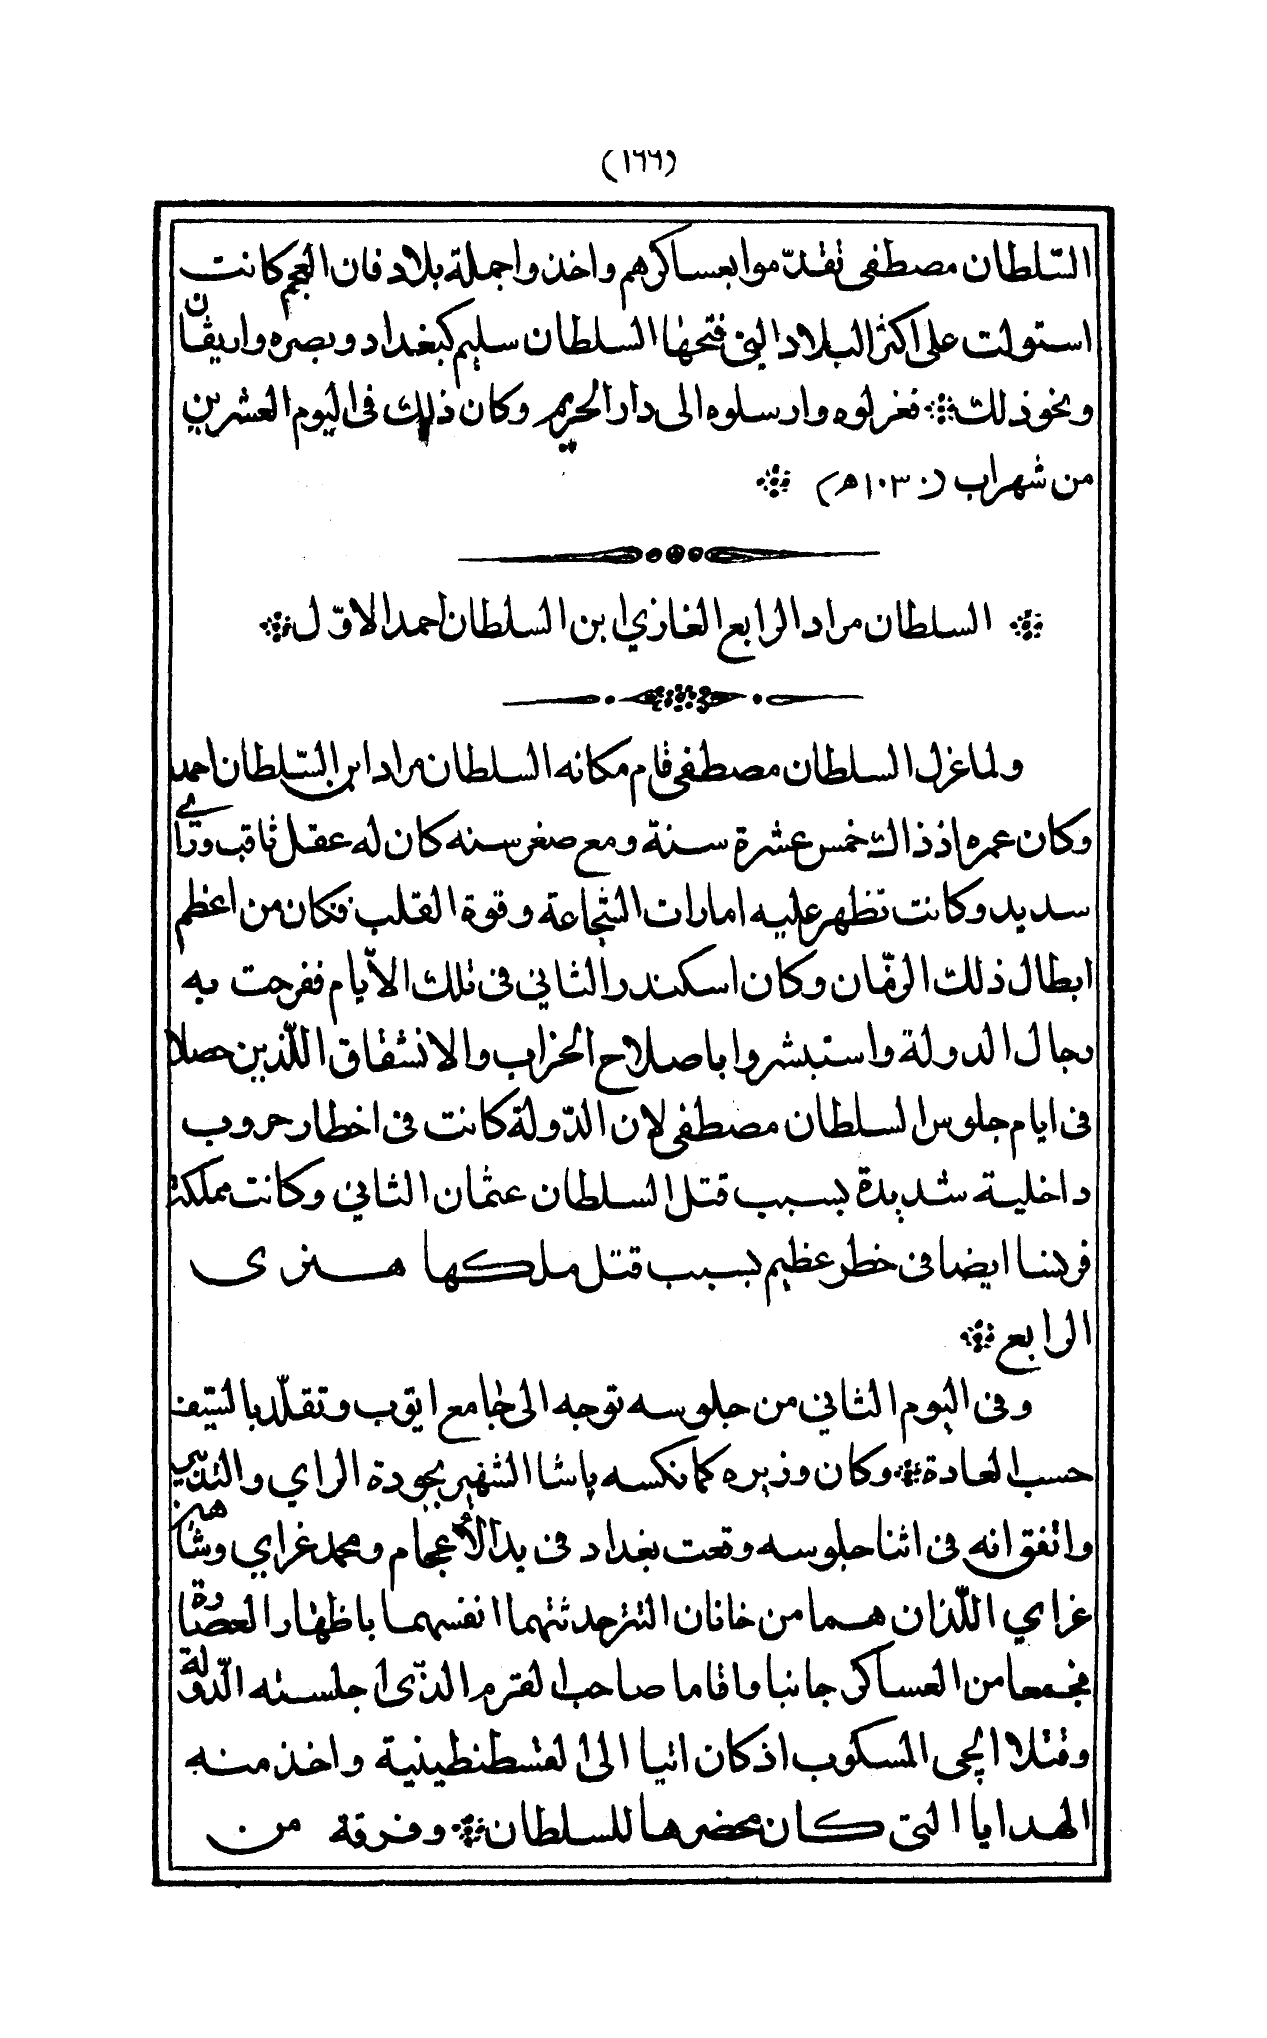 (١٦٦)
السّلطان مصطفى تقدّموا بعساكرهم واخذوا جملة بلاد فان العجم كانت
استولت على اكثر البلاد التي فتحها السلطان سليم كبغداد وبصره واريفان
ونحو ذلك فعزلوه وارسلوه الى دار الحريم وكان ذلك في اليوم العشرين
من شهر اب (١٠٣٠ هـ)
السلطان مراد الرابع الغازي ابن السلطان احمد الاوّل
ولما عزل السلطان مصطفى قام مكانه السلطان مراد ابن السّلطان احمد
وكان عمره اذ ذاك خمس عشرة سنة ومع صغر سنه كان له عقل ثاقب وراي
سديد وكانت تظهر عليه امارات الشجاعة وقوة القلب فكان من اعظم
ابطال ذلك الزمّان وكان اسكندر الثاني في تلك الايّام ففرحت به
رجال الدولة واستبشروا باصلاح الخراب والانشقاق اللّذين حصلا
في ايام جلوس السلطان مصطفى لان الدّولة كانت في اخطار حروب
داخلية شديدة بسبب قتل السلطان عثمان الثاني وكانت مملكة
فرنسا ايضا في خطر عظيم بسبب قتل ملكها هنري
الرابع
وفي اليوم الثاني من جلوسه توجه الى جامع ايّوب وتقلّد بالسّيف
حسب العادة وكان وزيره كمانكسه پاشا الشهير بجودة الراي والتدبير
واتفق انه في اثنا جلوسه وقعت بغداد في يد الأعجام ومحمد غراي وشاهين
غراي اللّذان هما من خانان التتر حدثتهما انفسهما باظهار العصاوة
فجمعا من العساكر جانبا واقاما صاحب القرم الذّي اجلسته الدّولة
وقتلا ايلچي المسكوب اذ كان اتيا الى القسطنطينية واخذ منه
الهدايا التي كان محضرها للسلطان وفرقة من